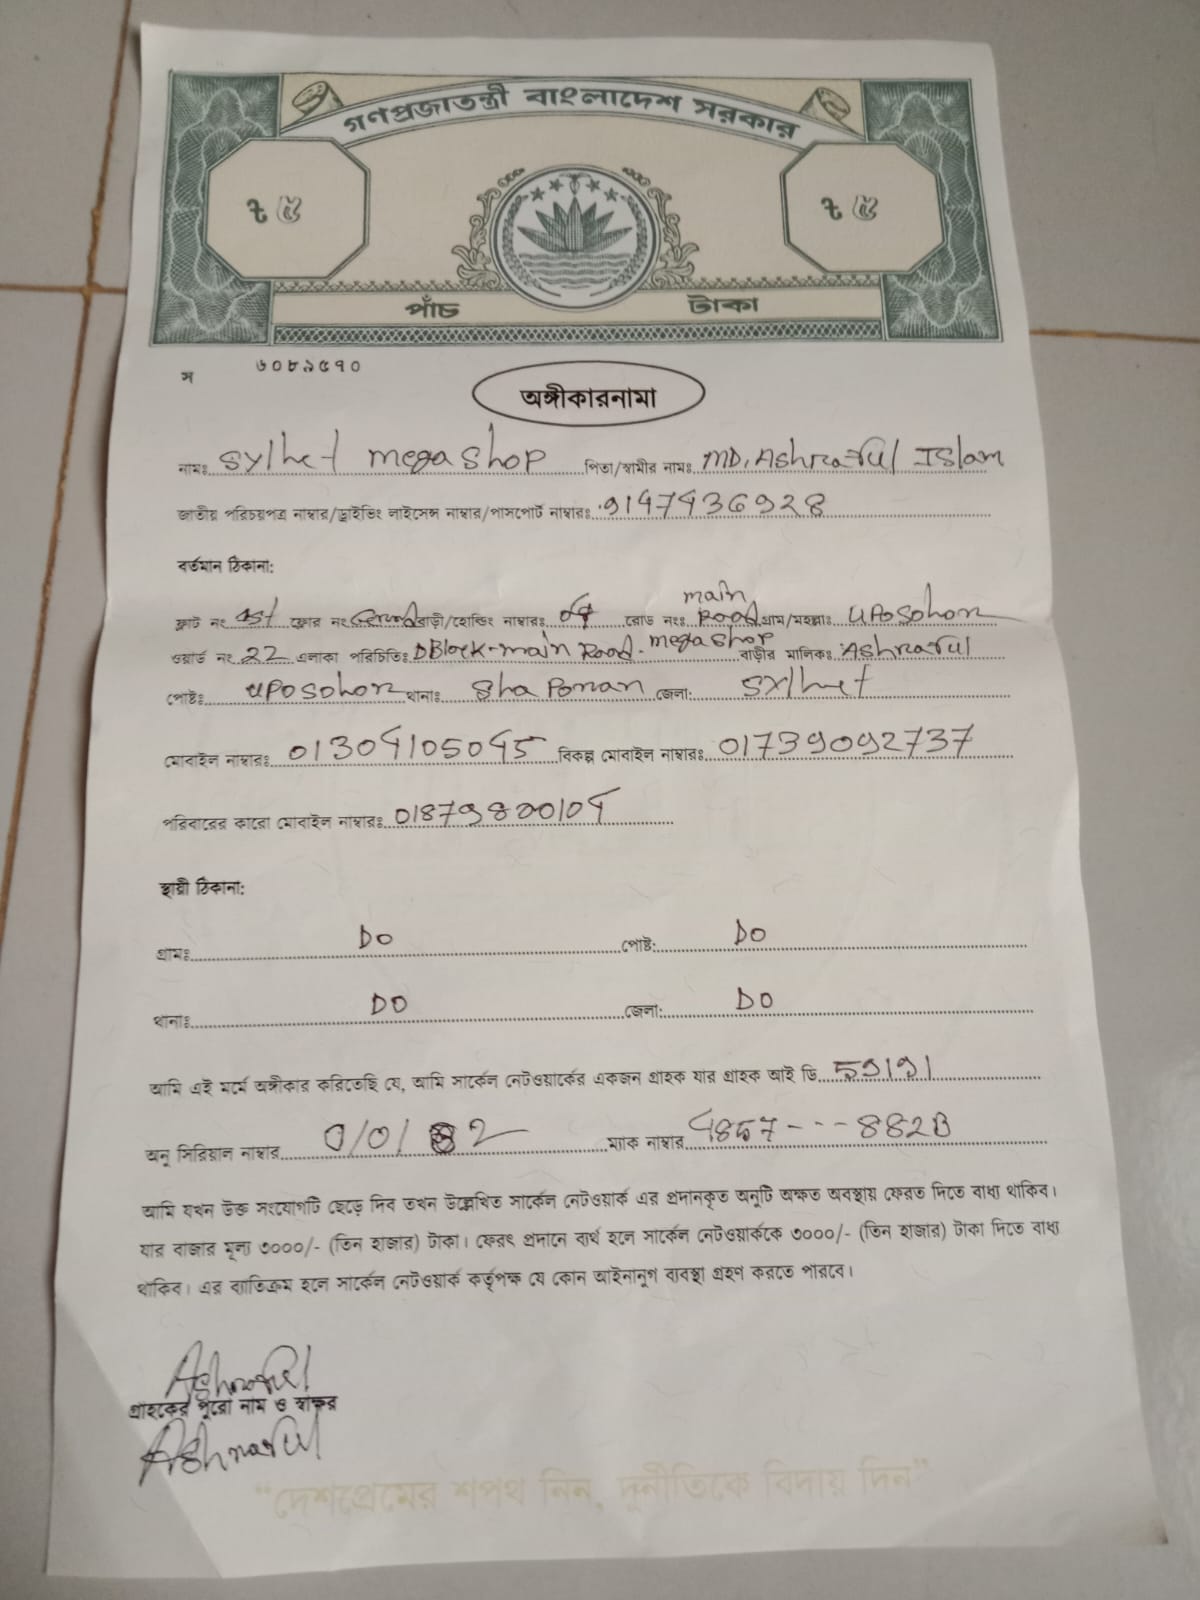 গণপ্রজাতন্ত্রী বাংলাদেশ সরকার
৳ ৫ ৳ ৫
পাঁচ টাকা
স ৬০৮৯৫৭০
অঙ্গীকারনামা
নামঃ Sylhet mega shop পিতা/স্বামীর নামঃ MD. Ashraful Islam
জাতীয় পরিচয়পত্র নাম্বার/ড্রাইভিং লাইসেন্স নাম্বার/পাসপোর্ট নাম্বারঃ 9147436928
বর্তমান ঠিকানা:
ফ্লাট নং 1st ফ্লোর নং বাড়ী/হোল্ডিং নাম্বারঃ 04 রোড নংঃ main Road গ্রাম/মহল্লাঃ UPoSohor
ওয়ার্ড নং 22 এলাকা পরিচিতিঃ D Block-main Road. mega shop বাড়ীর মালিকঃ Ashraful
পোষ্টঃ UPoSohor থানাঃ Sha Poran জেলা: Sylhet
মোবাইল নাম্বারঃ 01304105045 বিকল্প মোবাইল নাম্বারঃ 01739092737
পরিবারের কারো মোবাইল নাম্বারঃ 01879800104
স্থায়ী ঠিকানা:
গ্রামঃ DO পোষ্ট: DO
থানাঃ DO জেলা: DO
আমি এই মর্মে অঙ্গীকার করিতেছি যে, আমি সার্কেল নেটওয়ার্কের একজন গ্রাহক যার গ্রাহক আই ডি 59191
অনু সিরিয়াল নাম্বার 0/0/ 2 ম্যাক নাম্বার 4857---882B
আমি যখন উক্ত সংযোগটি ছেড়ে দিব তখন উল্লেখিত সার্কেল নেটওয়ার্ক এর প্রদানকৃত অনুটি অক্ষত অবস্থায় ফেরত দিতে বাধ্য থাকিব।
যার বাজার মূল্য ৩০০০/- (তিন হাজার) টাকা। ফেরৎ প্রদানে ব্যর্থ হলে সার্কেল নেটওয়ার্ককে ৩০০০/- (তিন হাজার) টাকা দিতে বাধ্য
থাকিব। এর ব্যতিক্রম হলে সার্কেল নেটওয়ার্ক কর্তৃপক্ষ যে কোন আইনানুগ ব্যবস্থা গ্রহণ করতে পারবে।
Ashraful
গ্রাহকের পুরো নাম ও স্বাক্ষর
Ashraful
“দেশপ্রেমের শপথ নিন, দুর্নীতিকে বিদায় দিন”